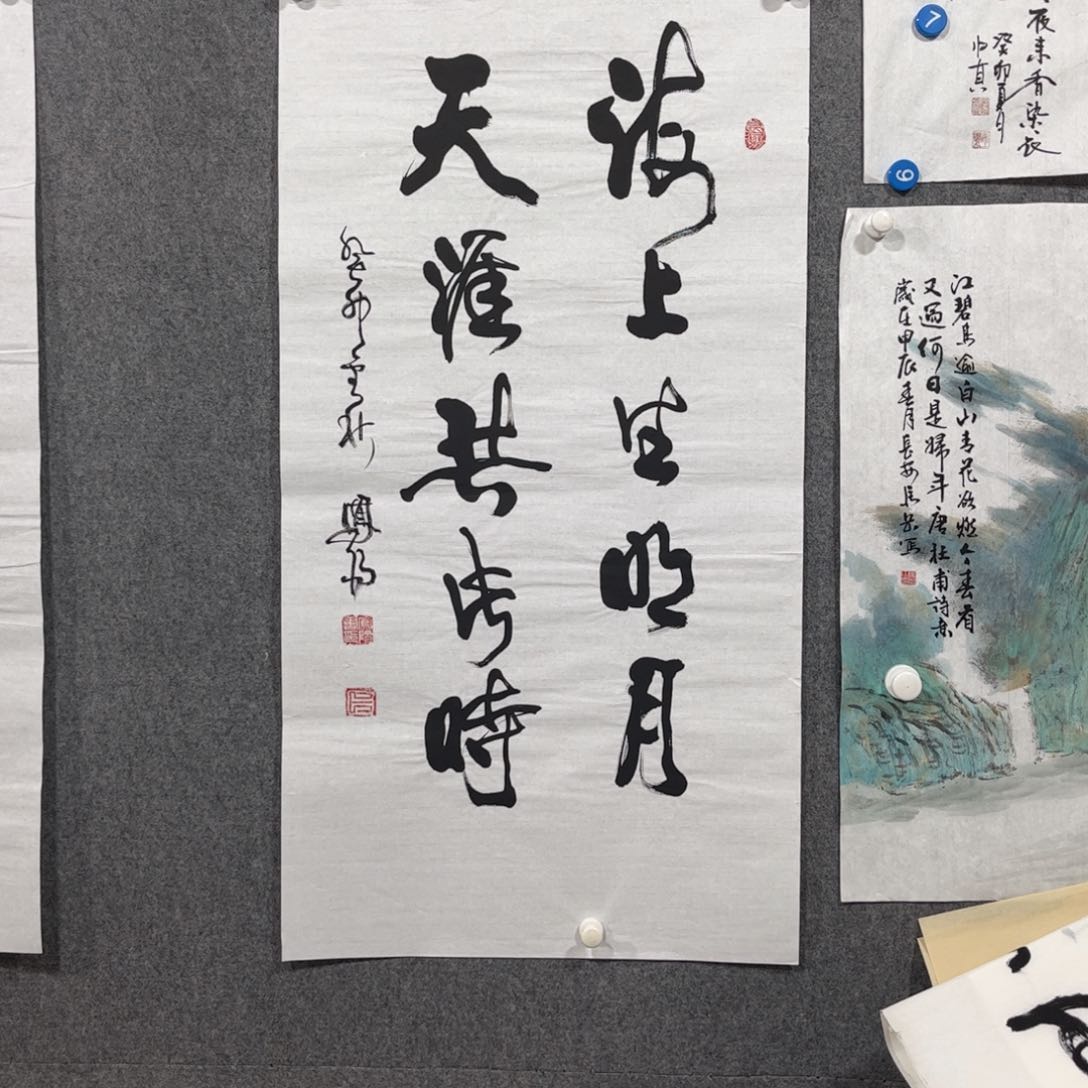 海上生明月
天涯共此時
癸卯秋
夜来香染衣
癸卯夏月
江碧鸟逾白山青花欲燃今春看
又過何日是歸年唐杜甫詩意
歲在甲辰春月長安
7